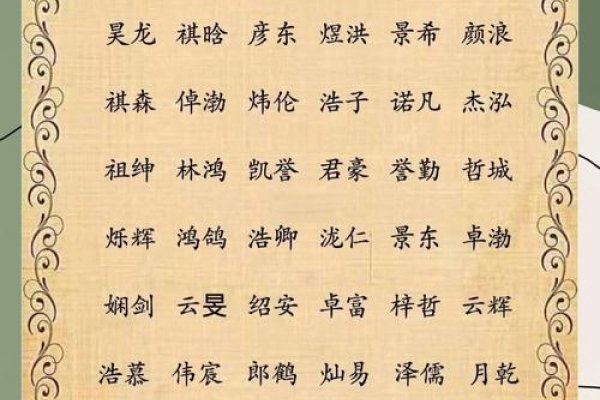 昊龙 祺晗 彦东 煜洪 景希 颜浪
祺森 倬渤 炜伦 浩子 诺凡 杰泓
祖绅 林鸿 凯誉 君豪 誉勤 哲城
烁辉 鸿鸽 浩卿 泷仁 景东 卓渤
娴剑 云旻 绍安 卓富 梓哲 云辉
浩慕 伟宸 郎鹤 灿易 泽儒 月乾